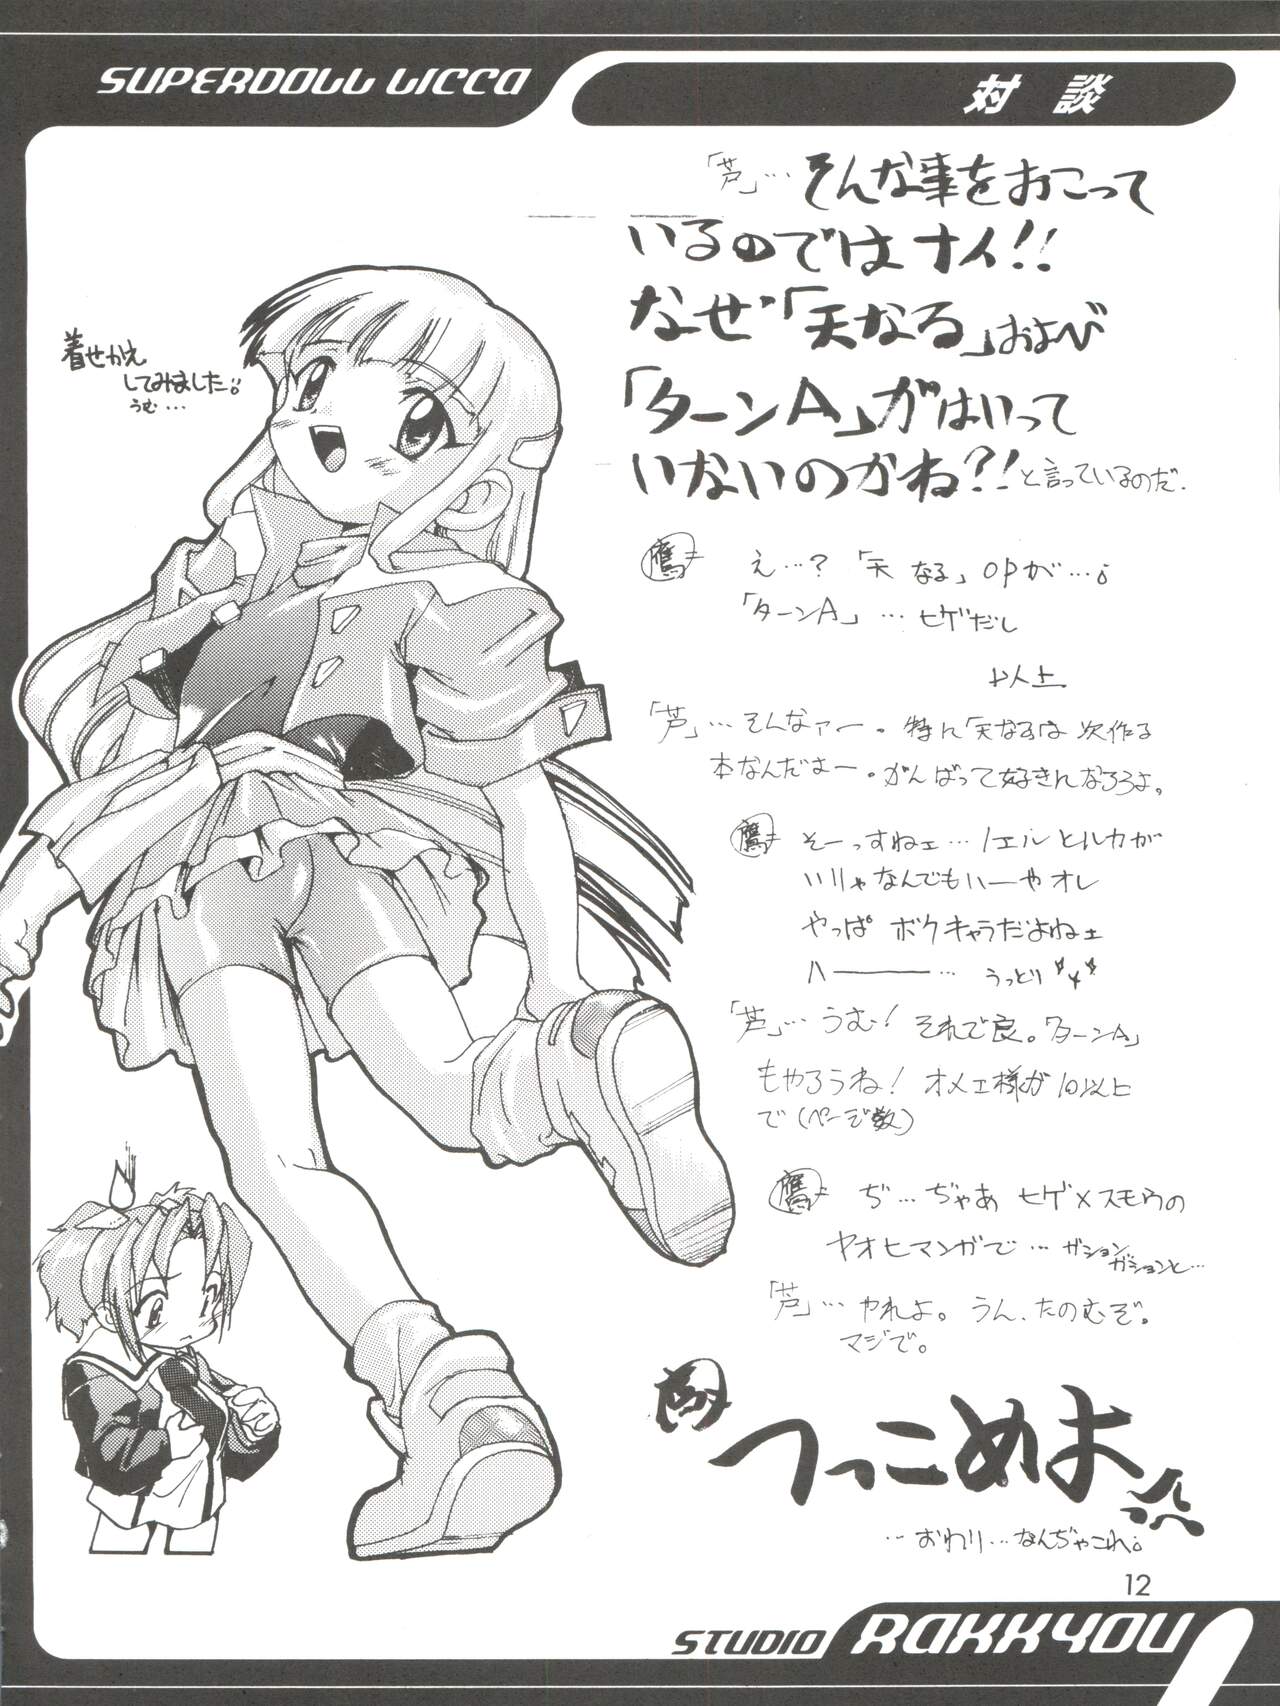 SUPERDOLL LICCA
対談
「芦」… そんな事をおこって
いるのではナイ!!
なぜ「天なる」および
「ターンA」がはいって
いないのかね?!と言っているのだ.
着せかえ
してみました。
うむ…
鷹 え…?「天なる」OPが…。
「ターンA」…ヒゲだし
以上
「芦」…そんなァー。特に天なるは次作る
本なんだよー。がんばって好きになろうよ。
鷹 そーっすねェ…ノエルとルカが
いりゃなんでもハーやオレ
やっぱ ボクキャラだよねェ
ハー……うっとり
「芦」…うむ!それで良。「ターンA」
もやろうね!オメェ様が10以上
で(ページ数)
鷹 ぢ…ぢゃあ ヒゲ×スモウの
ヤオヒマンガで…ガション
ガションと…
「芦」…やれよ。うん、たのむぞ。
マジで。
つっこめよ
…おわり…なんぢゃこれ。
12
STUDIO RAKKYOU